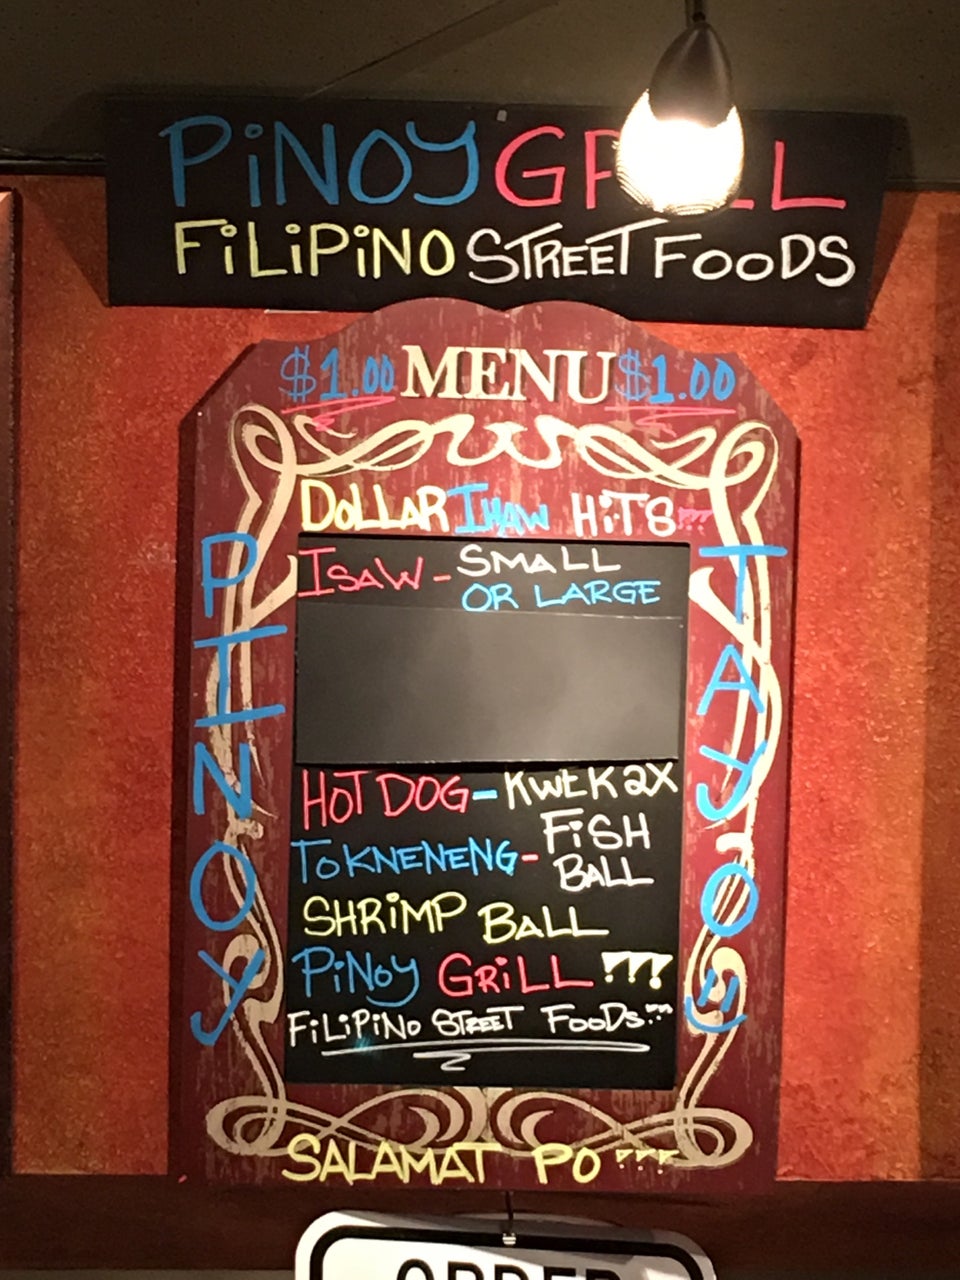 PiNOY GRILL
FiLiPiNO STREET FOODS
$1.00 MENU $1.00
DOLLAR IHAW HiTS!!!
ISAW - SMALL
OR LARGE
HOT DOG - KWEK2X
TOKNENENG - FiSH
BALL
SHRiMP BALL
PiNOY GRiLL !!!
FiLiPiNO STREET FOODS!!!
PINOY
TAYO :)
SALAMAT PO !!!
ORDER